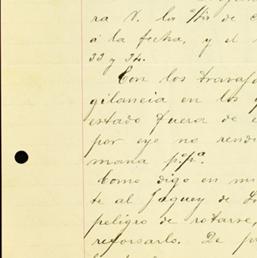 ra V. la Hia de
á la fecha, y el
33 y 34.
Con los travaj
gilancia en los
estado fuera de
por eyo no rend
mana ppº.
Como digo en mi
te al Jagüey de
peligro de rotarse,
reforsarlo. De